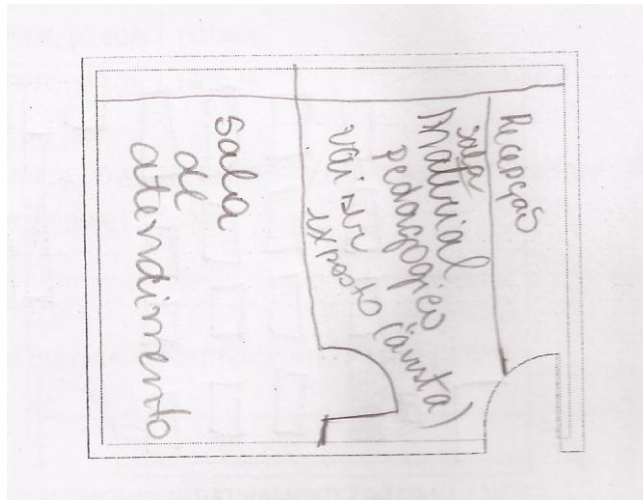 Recepção
sala
Material
pedagógico
vai ser
exposto
sala
de
atendimento